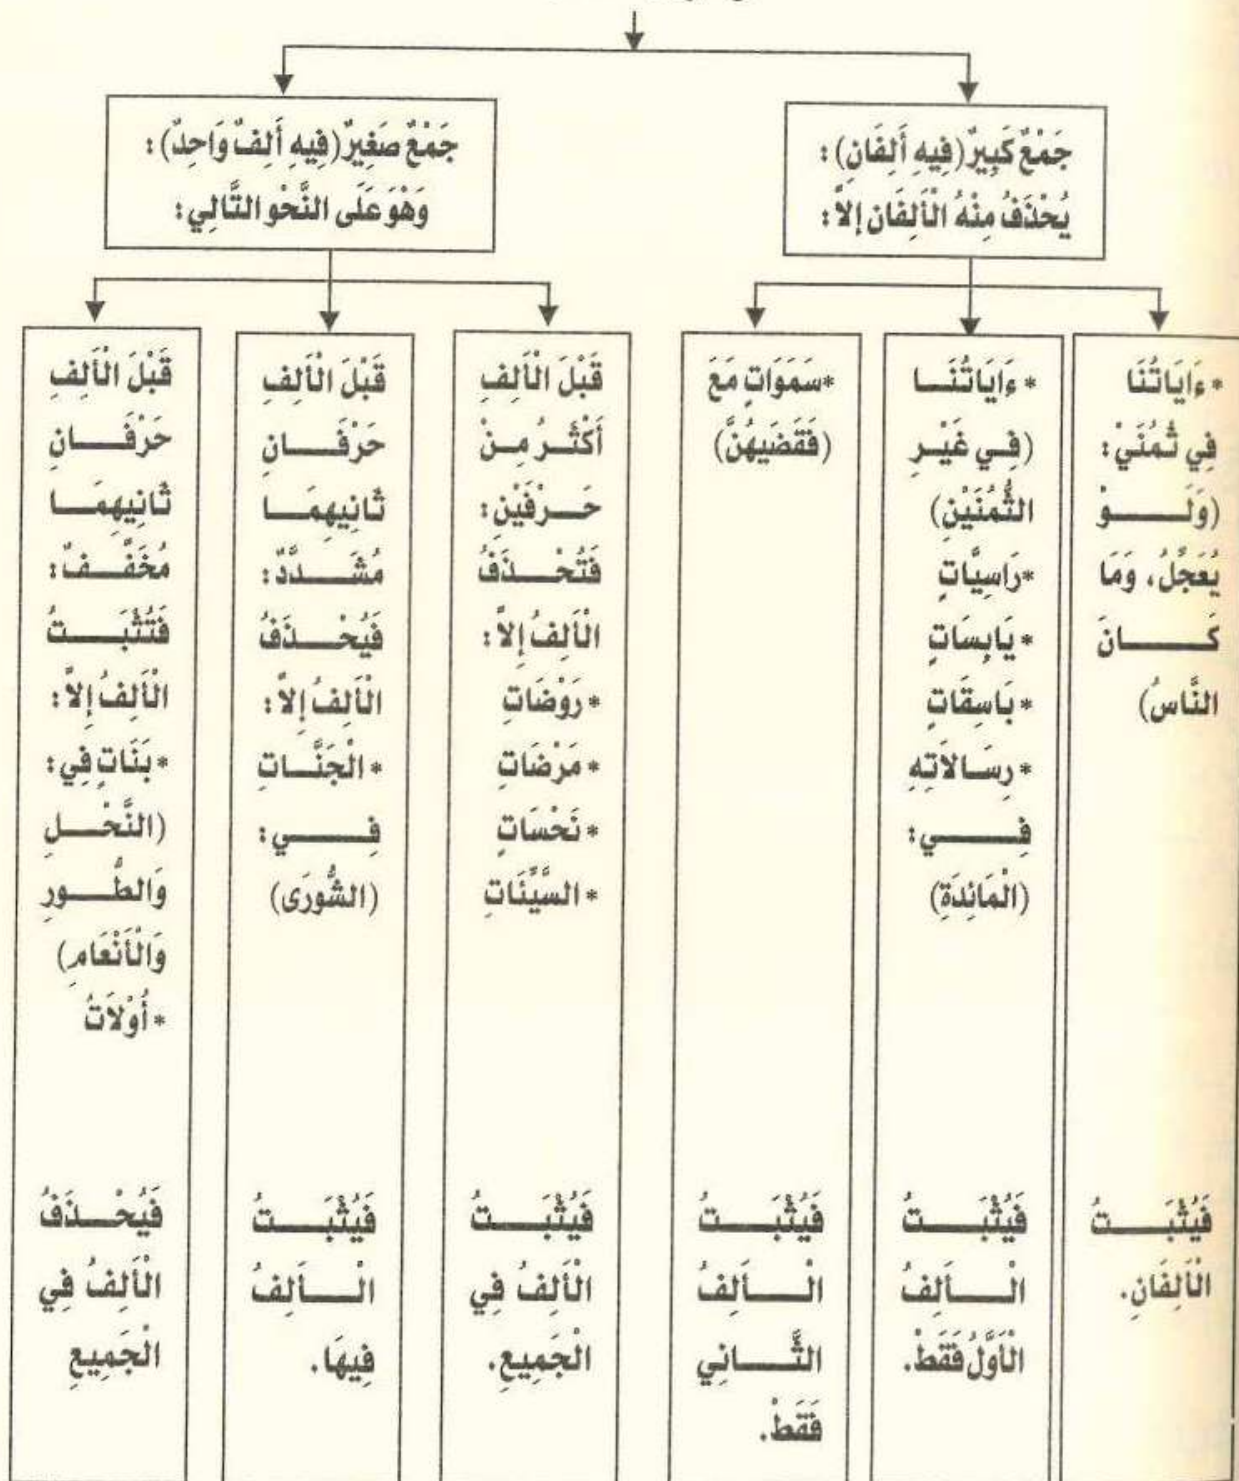 جَمْعٌ كَبِيرٌ (فِيهِ أَلِفَانِ):
يُحْذَفُ مِنْهُ الْأَلِفَان إلاَّ:
جَمْعٌ صَغِيرٌ (فِيهِ أَلِفٌ وَاحِدٌ):
وَهْوَ عَلَى النَّحْوِ التَّالِي:
* ءَايَاتُنَا
فِي ثُمُنَيْ:
(وَلَوْ
يُعَجِّلُ، وَمَا
كَانَ
النَّاسُ)
فَيُثْبَتُ
الْأَلِفَانِ.
* ءَايَاتُنَا
(فِي غَيْرِ
الثُّمُنَيْنِ)
* رَاسِيَّاتٍ
* يَابِسَاتٍ
* بَاسِقَاتٍ
* رِسَالاَتِهِ
فِي:
(الْمَائِدَةِ)
فَيُثْبَتُ
الْأَلِفُ
الْأَوَّلُ فَقَطْ.
* سَمَوَاتٍ مَعَ
(فَقَضَيهُنَّ)
فَيُثْبَتُ
الْأَلِفُ
الثَّانِي
فَقَطْ.
قَبْلَ الْأَلِفِ
أَكْثَرُ مِنْ
حَرْفَيْنِ:
فَتُحْذَفُ
الْأَلِفُ إلاَّ:
* رَوْضَاتِ
* مَرْضَاتِ
* نَحْسَاتٍ
* السَّيِّئَاتِ
فَيُثْبَتُ
الْأَلِفُ فِي
الْجَمِيعِ.
قَبْلَ الْأَلِفِ
حَرْفَانِ
ثَانِيهِمَا
مُشَدَّدٌ:
فَيُحْذَفُ
الْأَلِفُ إلاَّ:
* الْجَنَّاتِ
فِي:
(الشُّورَى)
فَيُثْبَتُ
الْأَلِفُ
فِيهَا.
قَبْلَ الْأَلِفِ
حَرْفَانِ
ثَانِيهِمَا
مُخَفَّفٌ:
فَتُثْبَتُ
الْأَلِفُ إلاَّ:
* بَنَاتٍ فِي:
(النَّحْلِ
وَالطُّورِ
وَالْأَنْعَامِ)
* أُوْلاَتُ
فَيُحْذَفُ
الْأَلِفُ فِي
الْجَمِيعِ